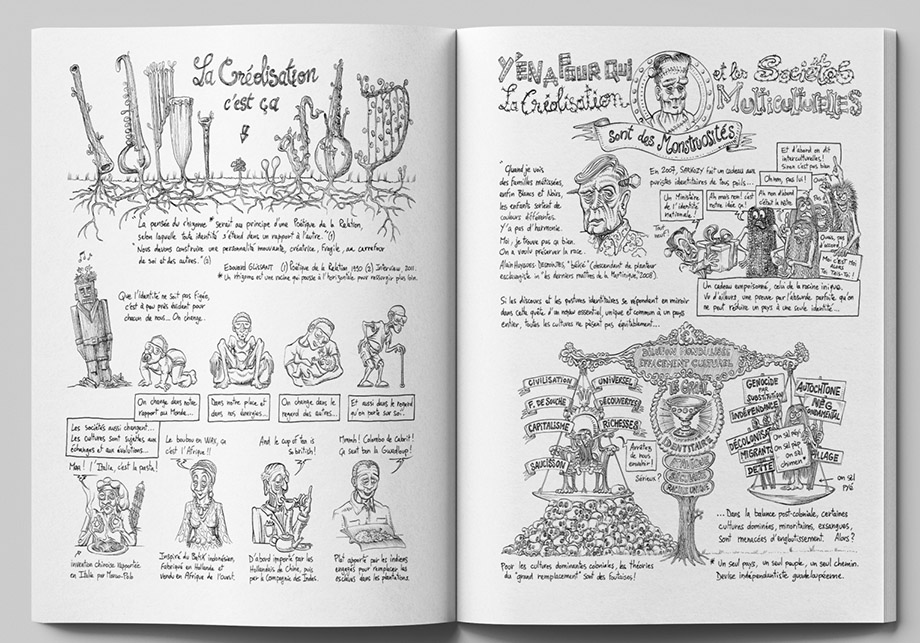 La Créolisation
c'est ça
"La pensée du rhizome * serait au principe d'une Poétique de la Relation,
selon laquelle toute identité s'étend dans un rapport à l'autre." (1)
"Nous devons construire une personnalité mouvante, créatrice, fragile, au carrefour
de soi et des autres." (2)
Edouard GLISSANT (1) Poétique de la Relation, 1990 (2) Interview, 2001.
* Un rhizome est une racine qui pousse à l'horizontale, pour ressurgir plus loin.
Que l'Identité ne soit pas figée,
c'est à peu près évident pour
chacun de nous... On change...
On change dans notre
rapport au Monde...
Dans notre place et
dans nos énergies...
On change dans le
regard des autres...
Et aussi dans le regard
qu'on porte sur soi.
Les sociétés aussi changent...
Les cultures sont sujettes aux
échanges et aux évolutions...
Maa! l'Italia, c'est la pasta!
Le boubou en WAX, ça
c'est l'Afrique!!
And the cup of tea is
so british!
Mmmh! Colombo de Cabrit!
Ça sent bon la Guadloup!
invention chinoise rapportée
en Italie par Marco-Polo
Inspiré du Batik indonésien,
fabriqué en Hollande et
vendu en Afrique de l'ouest.
D'abord importé par les
Hollandais de Chine, puis
par la Compagnie des Indes.
Plat apporté par les indiens
engagés pour remplacer les
esclaves dans les plantations.
Y'EN A POUR QUI
La Créolisation
et les Sociétés
Multiculturelles
sont des Monstruosités
"Quand je vois
des familles métissées,
enfin Blancs et Noirs,
les enfants sortent de
couleurs différentes.
Y'a pas d'harmonie.
Moi, je trouve pas ça bien.
On a voulu préserver la race.
Alain Huyghues Despointes, "béké" (descendant de planteur
esclavagiste in "les derniers maîtres de la Martinique", 2008)
En 2007, SARKOZY fait un cadeau aux
puristes identitaires de tous poils...
Et d'abord on dit
interculturelles!
Sinon c'est pas bien
Oh non, pas lui!
Un Ministère
de l'identité
nationale!
Ah mais non! c'est
notre idée ça!
Ah non d'abord
c'était la nôtre.
Tout
neuf!
Un cadeau empoisonné, celui de la racine unique.
Vu d'ailleurs, une preuve par l'absurde parfaite qu'on
ne peut réduire un pays à une seule identité...
Si les discours et les postures identitaires se répondent en miroir
dans cette quête d'un noyau essentiel, unique et commun à un pays
entier, toutes les cultures ne pèsent pas équitablement...
DILUTION MONDIALISÉE
EFFACEMENT CULTUREL
CIVILISATION
UNIVERSEL
F. DE SOUCHE
DÉCOUVERTES
CAPITALISME
RICHESSES
SAUCISSON
LE GRAAL
IDENTITAIRE
Arrêtez
de nous
envahir!
Sérieux?
GENOCIDE
PAR
SUBSTITUTION
AUTOCHTONE
INDÉPENDANCE
NÈG
FONDAMENTAL
DÉCOLONISATION
MIGRANTS
PILLAGE
DETTE
On sèl péyi
on sèl pèp
on sèl
chimen *
on sèl
pyé
... Dans la balance post-coloniale, certaines
cultures dominées, minoritaires, exsangues,
sont menacées d'engloutissement. Alors?
Pour les cultures dominantes coloniales, les théories
du "grand remplacement" sont des foutaises!
* Un seul pays, un seul peuple, un seul chemin.
Devise indépendantiste guadeloupéenne.